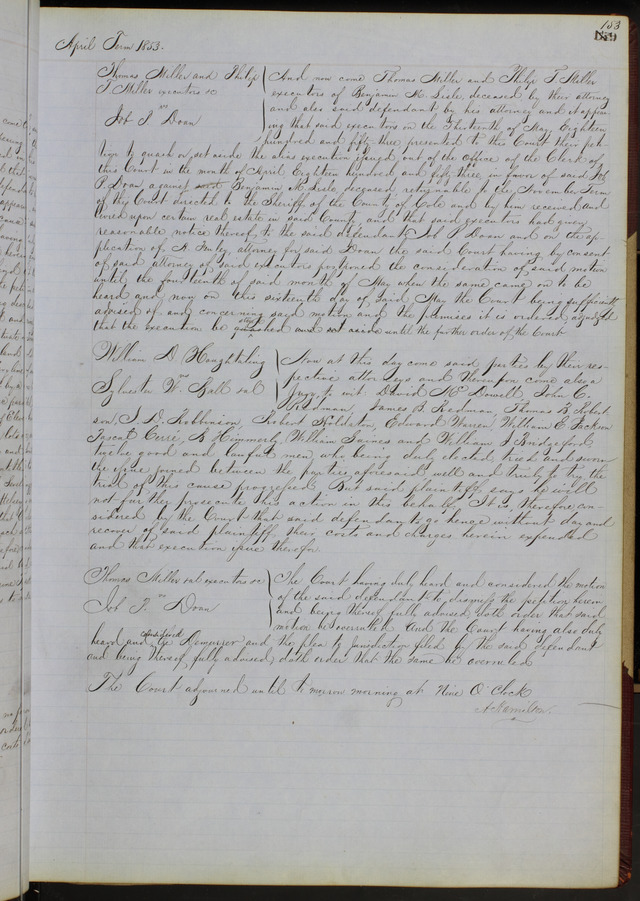 153
April Term 1853.
Thomas Miller and Philip
T Miller executors &c
vs
Job P Doan
And now come Thomas Miller and Philip T Miller
executors of Benjamin M. Lisle, deceased by their attorney
and also said defendant by his attorney and it appear
ing that said executors on the Thirteenth of May Eighteen
hundred and fifty three presented to this Court their peti
tion to quash or set aside the alias execution issued out of the Office of the Clerk of
this Court in the month of April Eighteen hundred and fifty three, in favor of said Job
P. Doan against Benjamin M. Lisle, deceased, returnable to the November Term
of this Court directed to the Sheriff of the County of Cole and by him received and
levied upon certain real estate in said County, and that said executors had given
reasonable notice thereof, to the said defendant Job P Doan and on the ap
plication of attorney for said Doan the said Court having by consent
of said attorney of said executors postponed the consideration of said motion
until the fourteenth of said month of May when the same came on to be
heard and now on this sixteenth day of said May the Court being sufficiently
advised of and concerning said motion and the premises it is ordered adjudged
that the execution be stayed and set aside until the further order of the Court
William D Houghtaling
vs
Sylvester W. Ball
Now at this day come said parties by their res
pective attorneys and thereupon come also a
Jury to wit: David McDowell, John C.
Redman, James B. Redman, Thomas B Robert
son, J. D. Robbinson, Robert Edward Warren, William E Jackson
Pascal Cerré, B Hemmerly, William Gaines and William J Bridgeford
twelve good and lawful men, who being duly elected, tried and sworn
the issue joined between the parties aforesaid well and truly to try the
trial of this cause progressed. But said plaintiff says he will
not further prosecute his action in this behalf. It is therefore con
sidered by the Court that said defendants go hence without day and
recover of said plaintiff their costs and charges herein expended
and that execution issue therefor.
Thomas Miller executors &c
vs
Job P. Doan
The Court having duly heard and considered the motion
of the said defendant to dismiss the petition herein
and being thereof fully advised doth order that said
motion be overruled. And the Court having also duly
heard and considered the Demurrer and the plea to jurisdiction filed by the said defendant
and being thereof, fully advised, doth order that the same be overruled
The Court adjourned until to morrow morning at Nine O'Clock